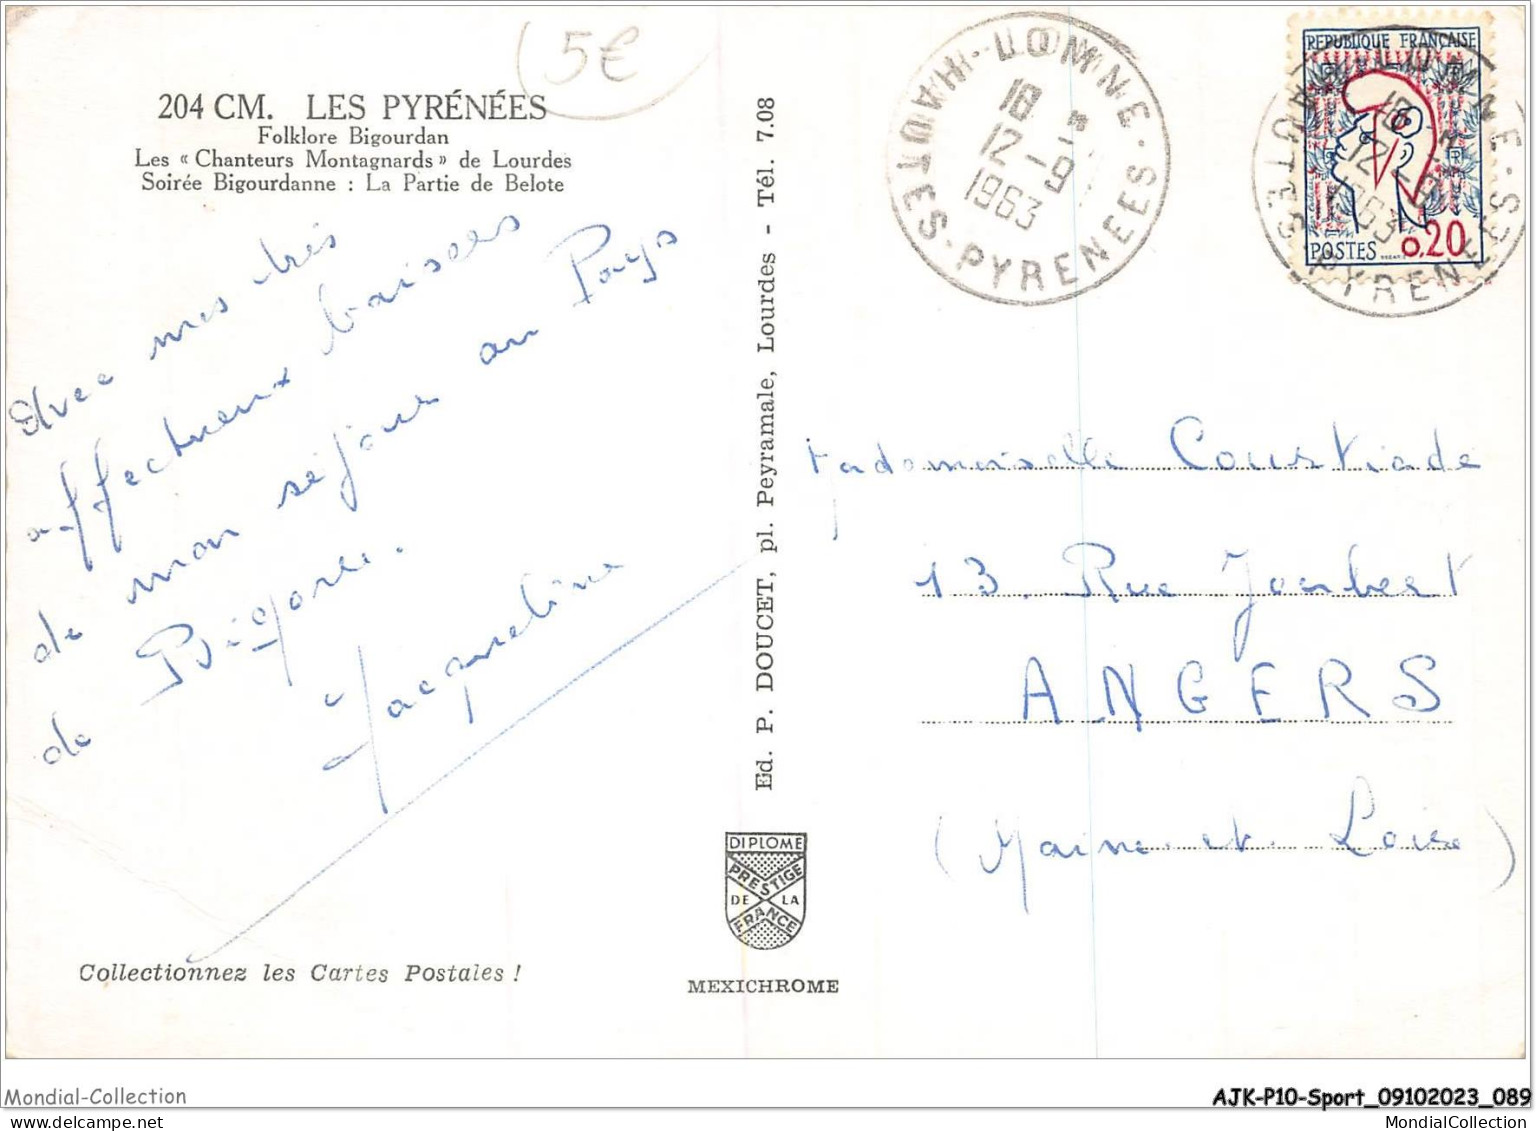 5€
204 CM. LES PYRÉNÉES
Folklore Bigourdan
Les « Chanteurs Montagnards » de Lourdes
Soirée Bigourdanne : La Partie de Belote
Avec mes très
affectueux baisers
de mon séjour au Pays
de Bigorre.
Jacqueline
Collectionnez les Cartes Postales !
Ed. P. DOUCET, pl. Peyramale, Lourdes - Tél. 7.08
DIPLOME
PRESTIGE
DE LA
FRANCE
MEXICHROME
18
12-9
1963
HAUTES-PYRENEES
REPUBLIQUE FRANÇAISE
POSTES 0,20
18
12-9
1963
Mademoiselle Coustiade
13. Rue Joubert
ANGERS
(Maine et Loire)
Mondial-Collection
AJK-P10-Sport_09102023_089
MondialCollection